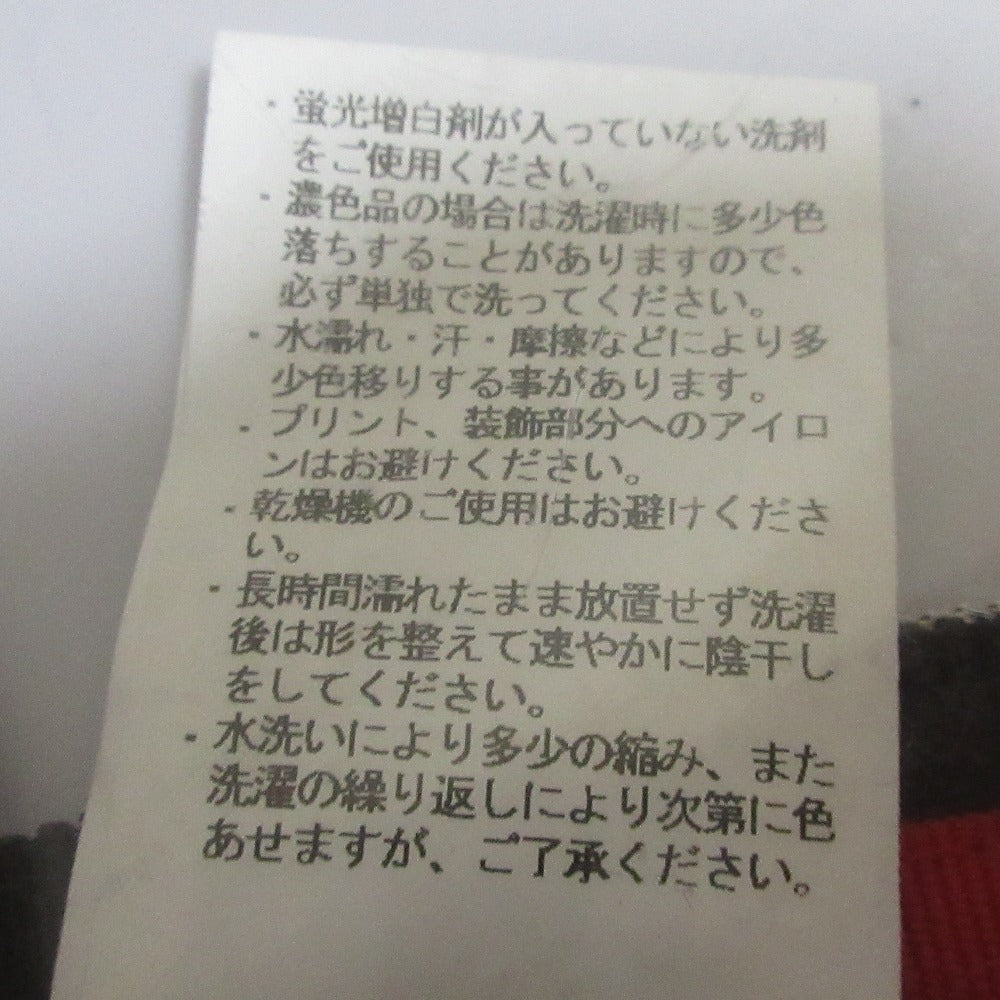 ・蛍光増白剤が入っていない洗剤
をご使用ください。
・濃色品の場合は洗濯時に多少色
落ちすることがありますので、
必ず単独で洗ってください。
・水濡れ・汗・摩擦などにより多
少色移りする事があります。
・プリント、装飾部分へのアイロ
ンはお避けください。
・乾燥機のご使用はお避けくださ
い。
・長時間濡れたまま放置せず洗濯
後は形を整えて速やかに陰干し
をしてください。
・水洗いにより多少の縮み、また
洗濯の繰り返しにより次第に色
あせますが、ご了承ください。